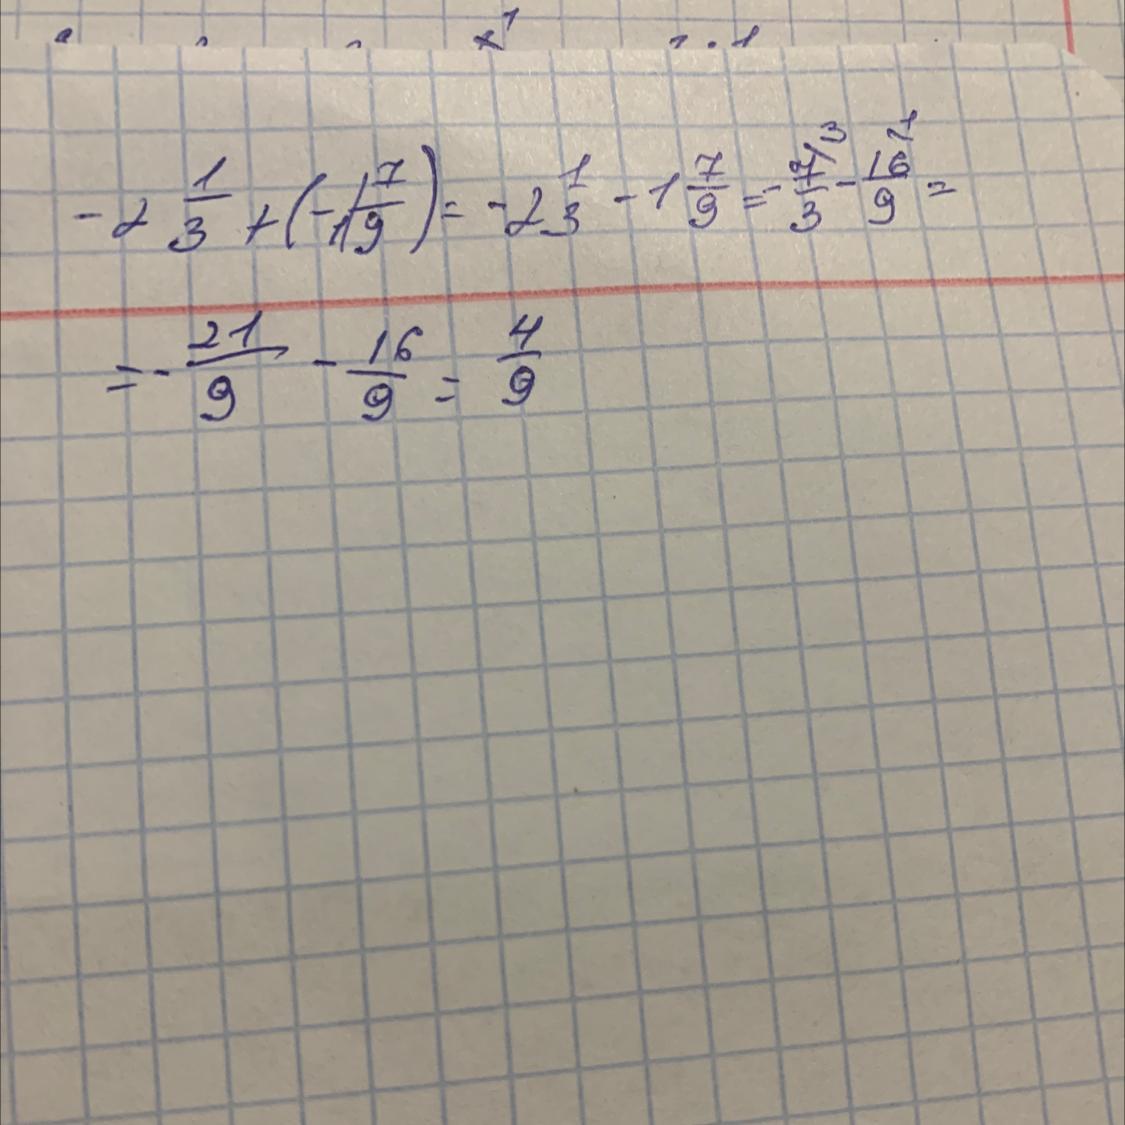 -2 1/3 + (-1 7/9) = -2 1/3 - 1 7/9 = -7/3 ³ - 16/9 ¹ =
= - 21/9 - 16/9 = 4/9